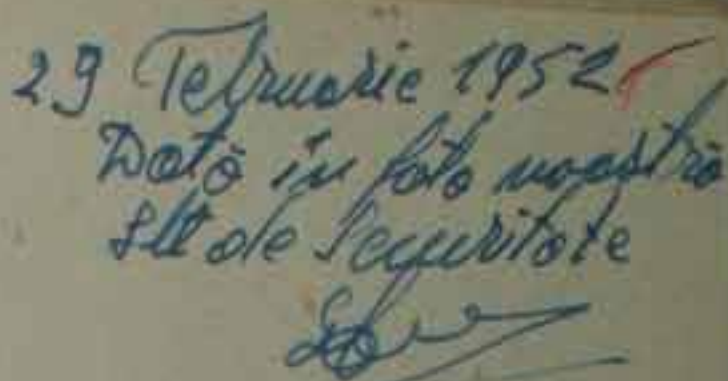 29 Februarie 1952
Dată în fața noastră
Slt de Securitate